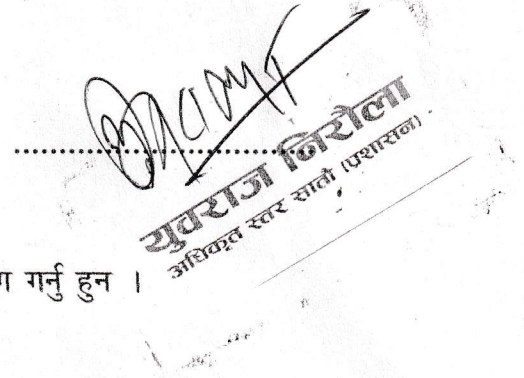 युवराज निरौला
अधिकृत स्तर सातौ (प्रशासन)
गर्नु हुन ।